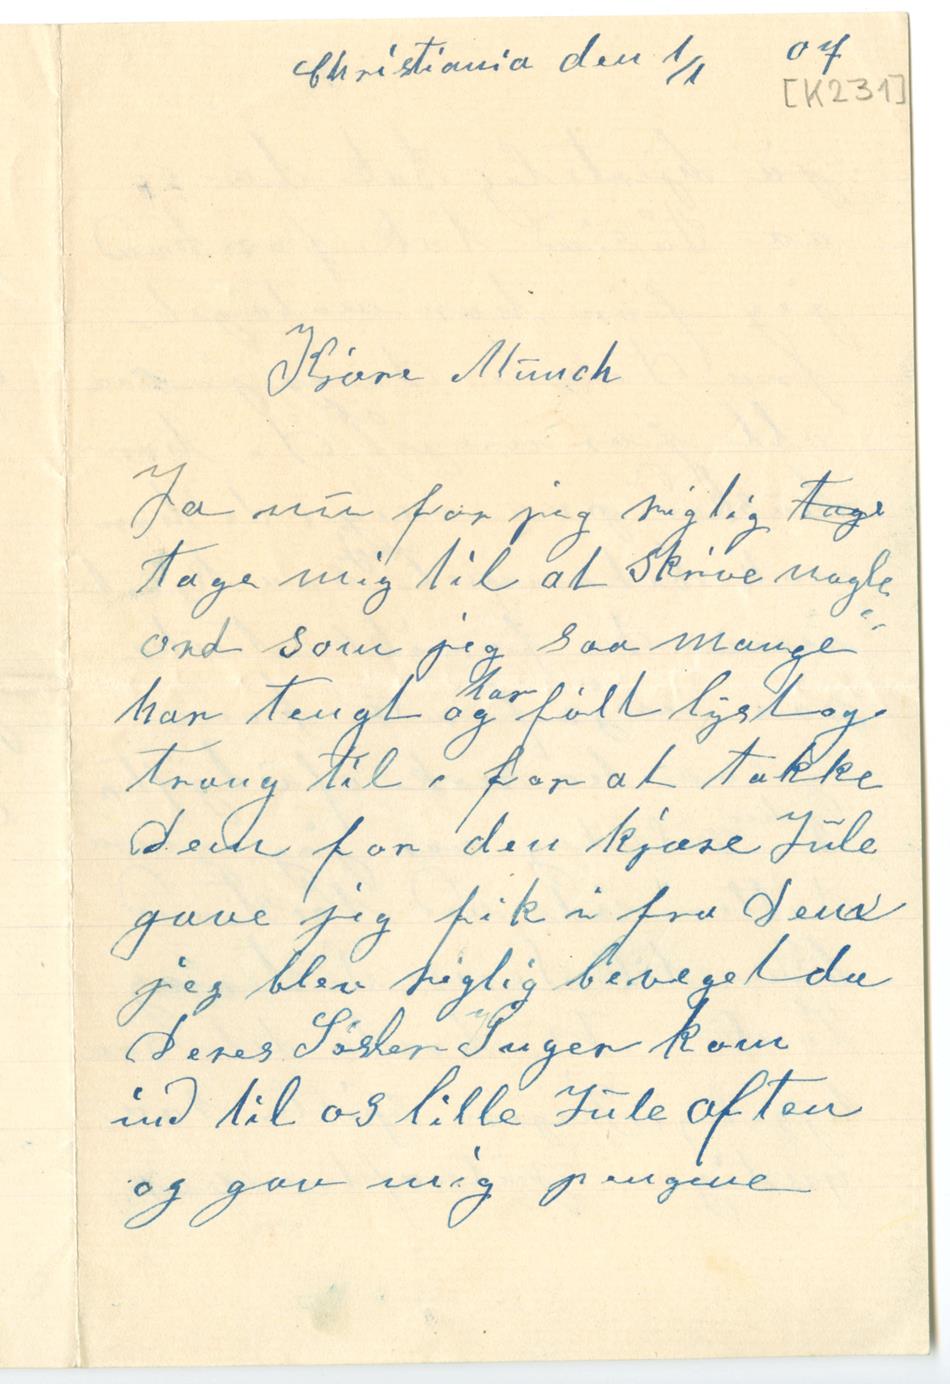 Christiania den 1/1 07
[K231]
Kjære Münch
Ja nū for jeg rigtig tage
tage mig til at skrive nogle
ord som jeg saa mange ""
har tengt og har følt lyst og
trang til, for at takke
Dem for den kjære Jūle
gave jeg fik i fra Dem
jeg blev rigtig beveget da
Deres Søster Inger kom
ind til os lille Jūle aften
og gav mig pengene